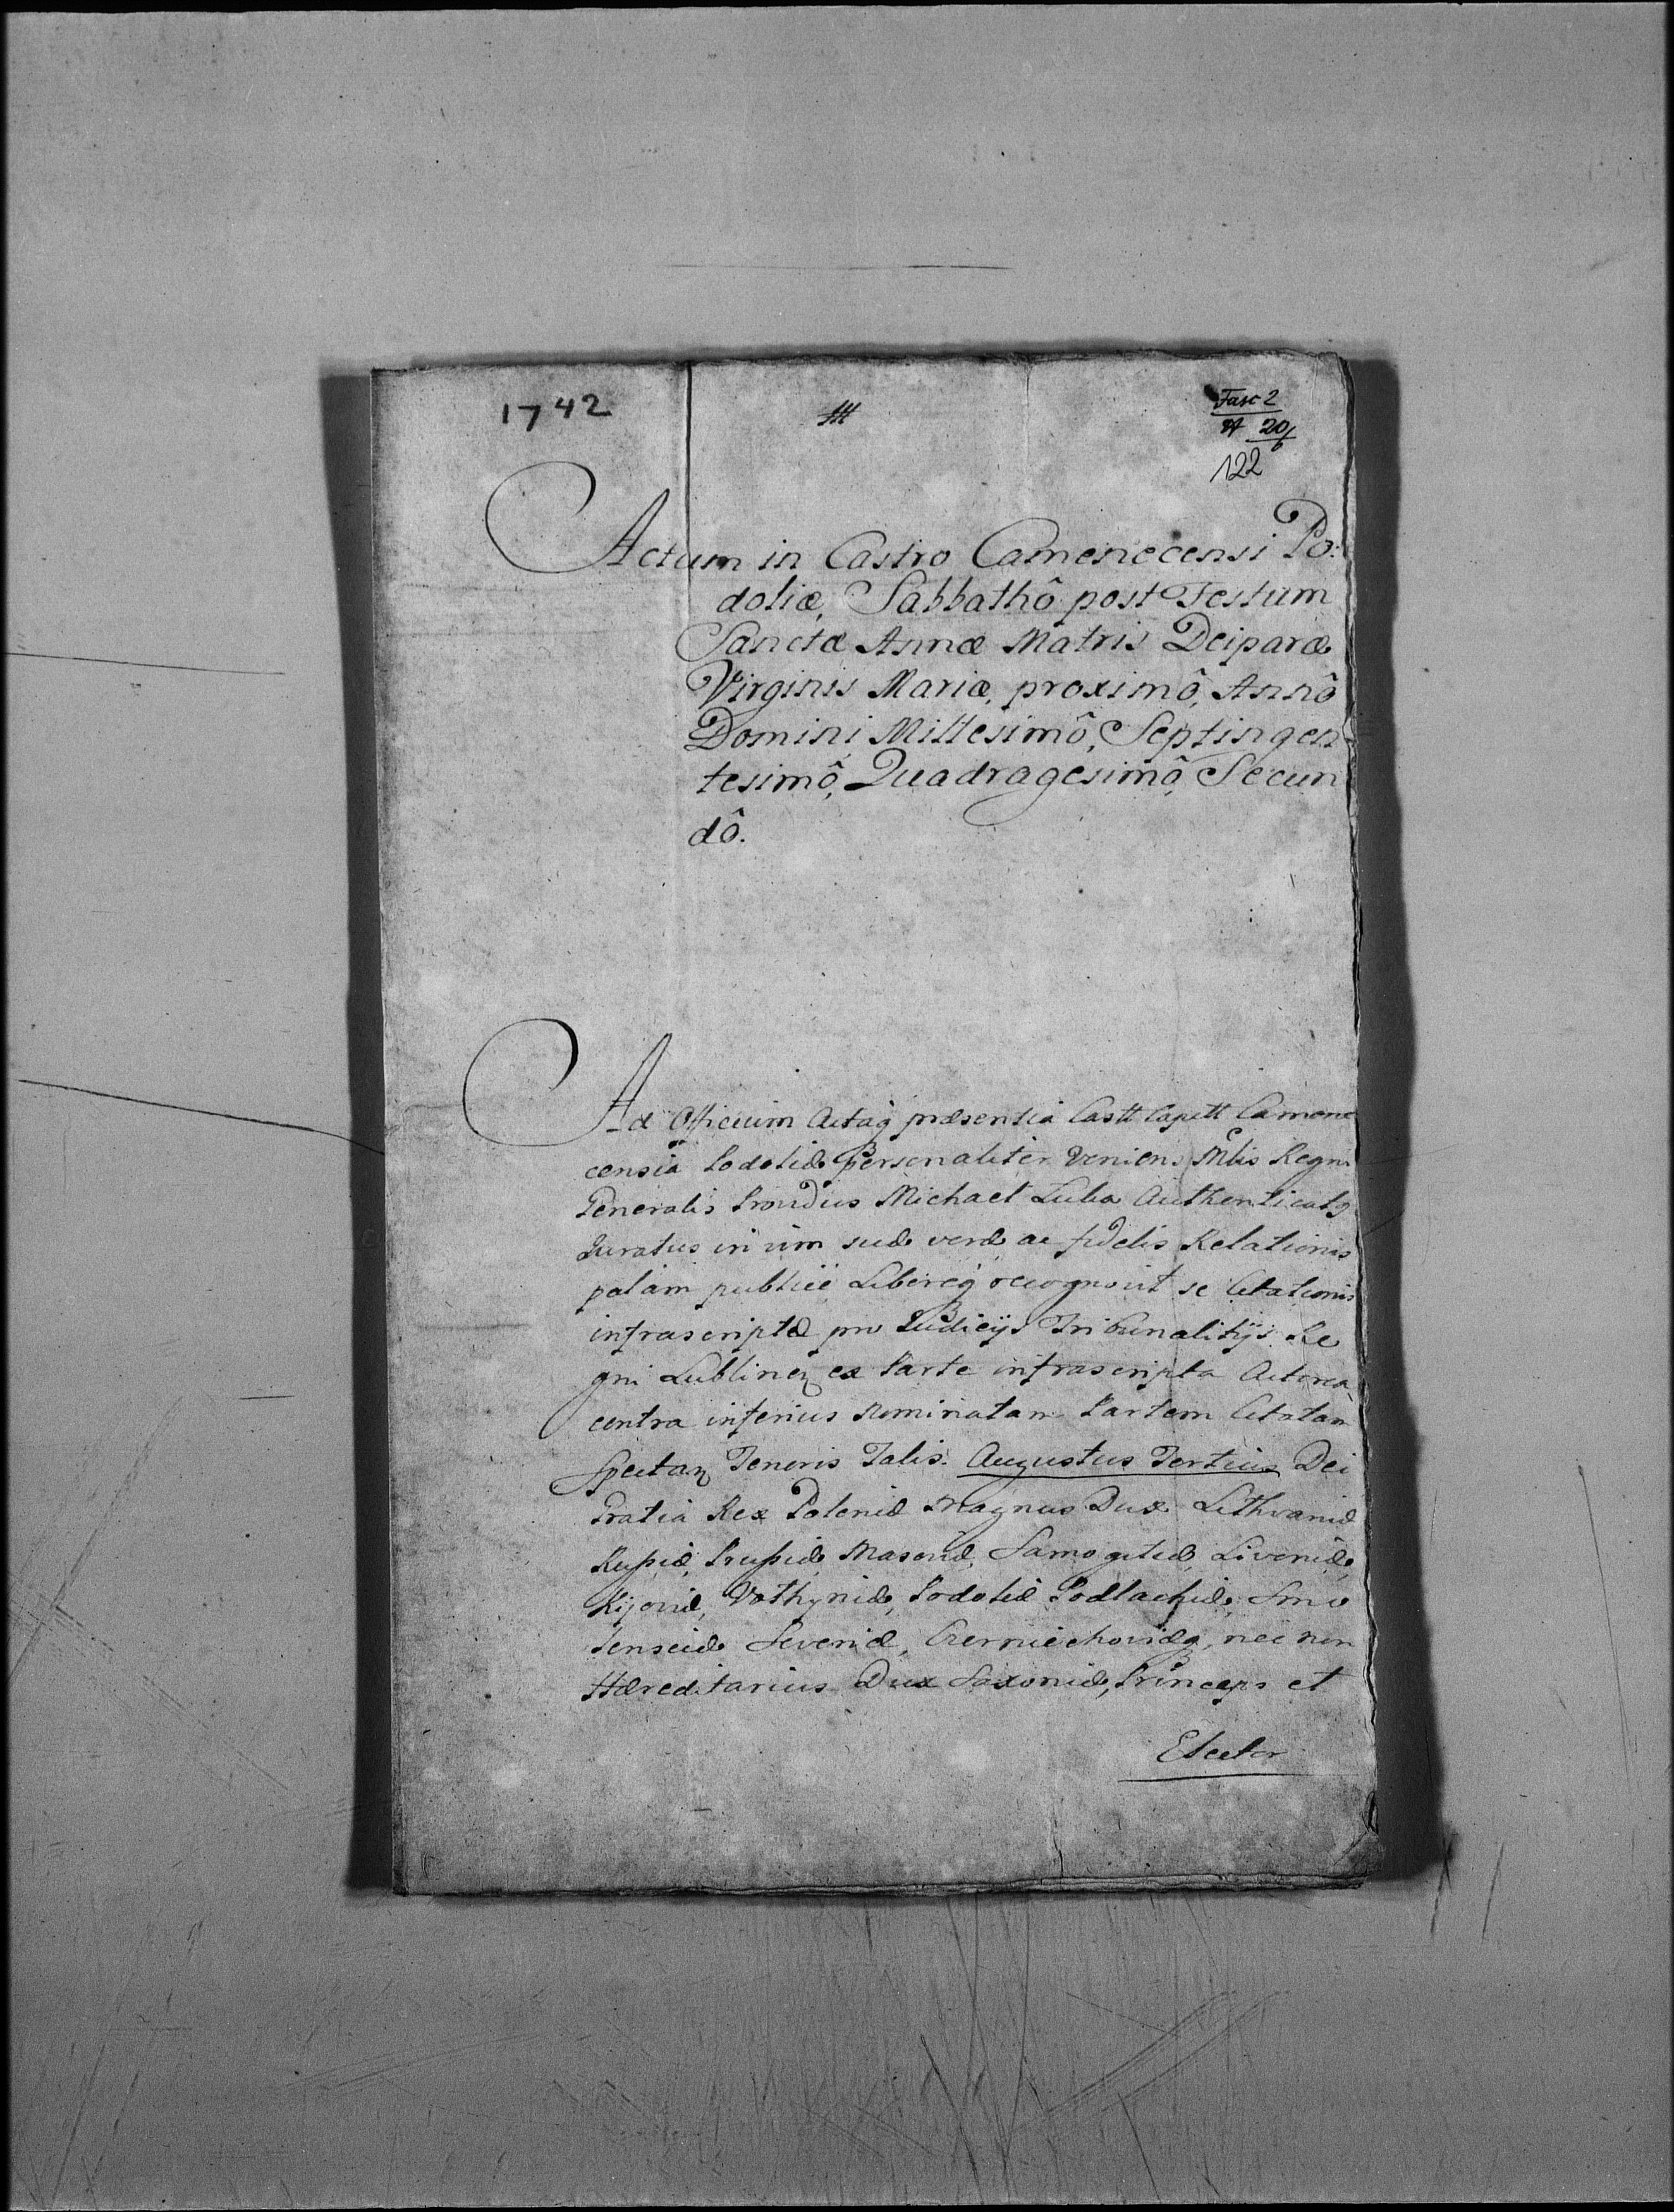 1742
Fasc 2
№ 20/6
122
Actum in Castro Camenecensi Po:
doliæ, Sabbathô post Festum
Sanctæ Annæ Matris Deiparæ
Virginis Mariæ, proximô, Annô
Domini Millesimô, Septingen
tesimô, Quadragesimô, Secun
dô.
Ad Officium Actaq præsentia Castt Capitt Camene
censia Podoliæ personaliter Veniens Mtis Regni
Generalis Providus Michael Luba Authenticatq
Juratus in vim suæ veræ ac fidelis Relationis
palàm publicè Libereq recognovit se Citationis
infrascriptæ pro Judicijs Tribunalitijs Re
gni Lublinen ex Parte infrascripta Actorea
contra inferius Nominatam Partem Citatam
Spectan Tenoris Talis. Augustus Tertius Dei
Gratia Rex Poloniæ Magnus Dux Lithvaniæ
Rußiæ, Prußiæ Masoviæ, Samogitiæ, Livoniæ,
Kijoviæ, Volhyniæ, Podoliæ Podlachiæ, Smo
lensciæ Severiæ, Czerniechoviæq, nec non
Hæreditarius Dux Saxoniæ, Princeps et
Elector